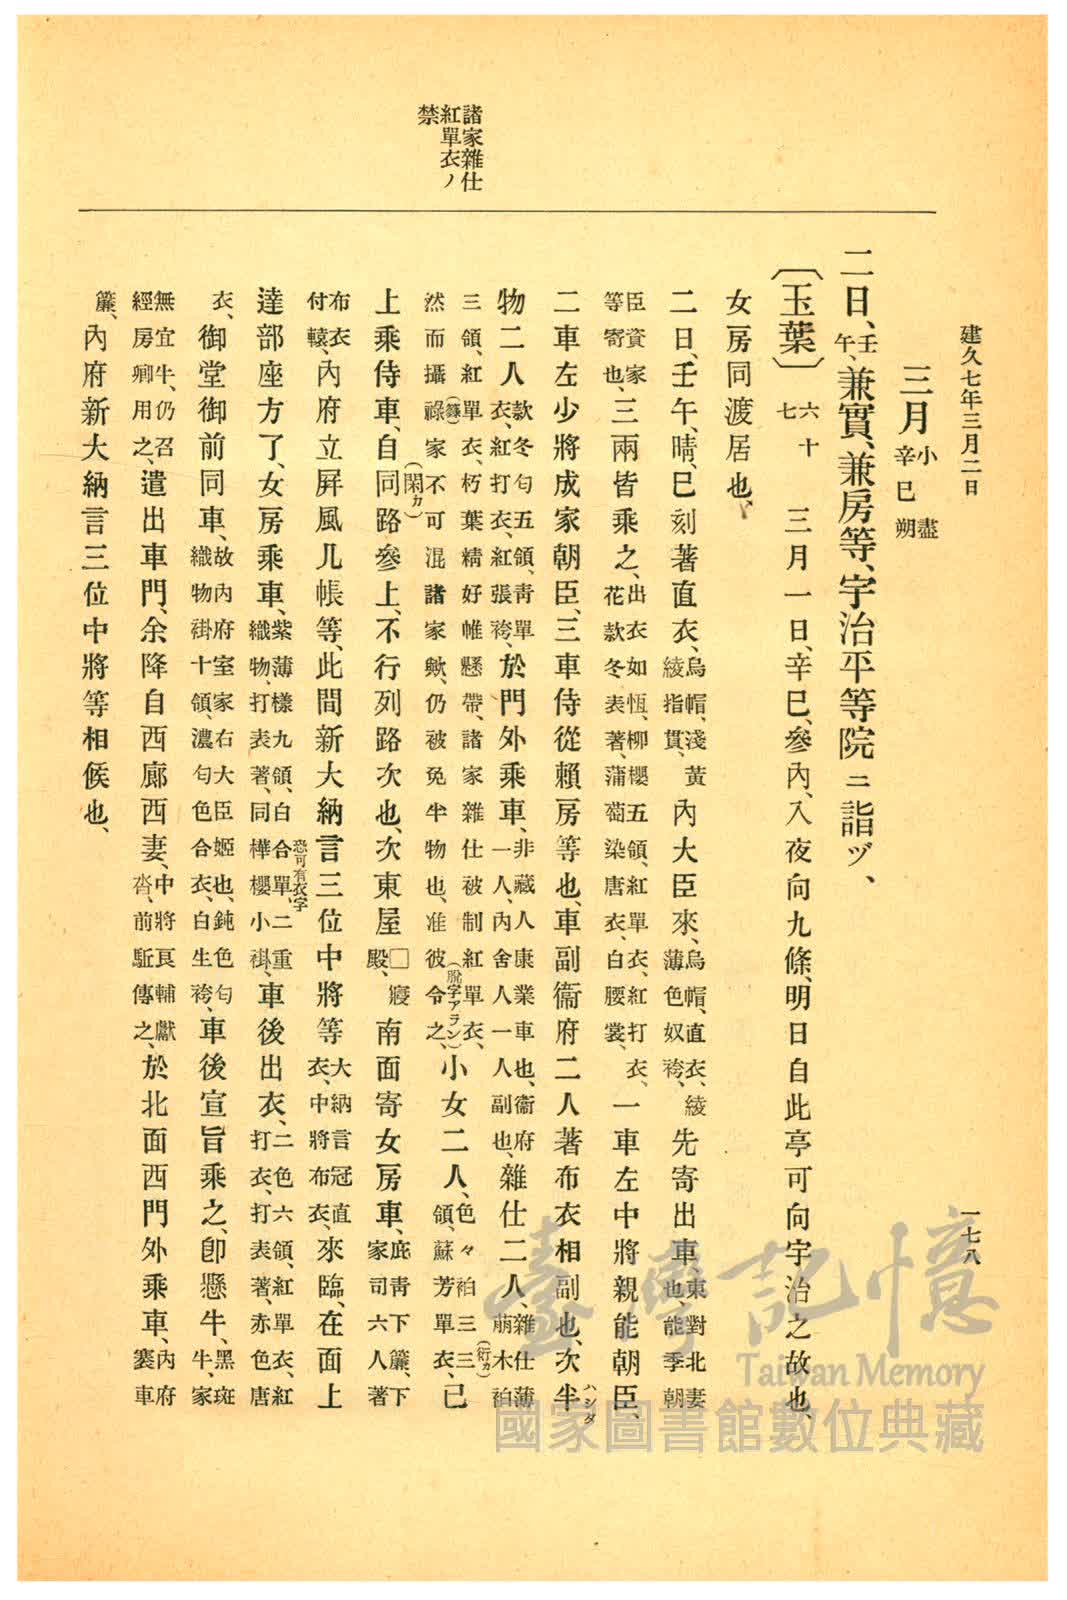 建久七年三月二日
一七八
諸家雜仕
紅單衣ノ
禁
三月小盡辛巳朔
二日、壬午、兼實、兼房等、宇治平等院ニ詣ヅ、
〔玉葉〕六十七 三月一日、辛巳、參內、入夜向九條、明日自此亭可向宇治之故也、
女房同渡居也、
二日、壬午、晴、巳刻著直衣、烏帽、淺黃綾指貫、內大臣來、烏帽、直衣、綾薄色奴袴、先寄出車、東對北妻也、能季朝
臣資家等寄也、三兩皆乘之、出衣如恆、柳櫻五領、紅單衣、紅打衣、花款冬表著、蒲萄染唐衣、白腰裳、一車左中將親能朝臣、
二車左少將成家朝臣、三車侍從賴房等也、車副衞府二人著布衣相副也、次半ハシタ
物二人、款冬匂五領、靑單衣、紅打衣、紅張袴、於門外乘車、非藏人康業車也、衞府一人、內舍人一人副也、雜仕二人、雜仕薄萠木袙
三領、紅單衣、朽葉精好帷懸帶、諸家雜仕被制紅單衣、然而攝祿(籙)家不可混諸家歟、仍被免半物也、准彼令之、(脫字アラン)小女二人、色々袙三三(衍カ)領、蘇芳單衣、已
上乘侍車、自同(閑カ)路參上、不行列路次也、次東屋□寢殿、南面寄女房車、庇靑下簾、下家司六人著
布衣付轅、內府立屛風几帳等、此間新大納言三位中將等大納言冠直衣、中將布衣、來臨、在面上
達部座方了、女房乘車、紫薄樣九領、白合單、(恐可有衣字)二重織物、打表著、同樺櫻小褂、車後出衣、二色六領、紅單衣、紅打衣、打表著、赤色唐
衣、御堂御前同車、故內府室家右大臣姬也、鈍色匂織物褂十領、濃匂色合衣、白生袴、車後宣旨乘之、卽懸牛、黑斑牛、家
無宜牛、仍召經房卿用之、遣出車門、余降自西廊西妻、中將良輔獻沓、前駈傳之、於北面西門外乘車、內府褰車
簾、內府新大納言三位中將等相候也、
臺灣記憶
Taiwan Memory
國家圖書館數位典藏